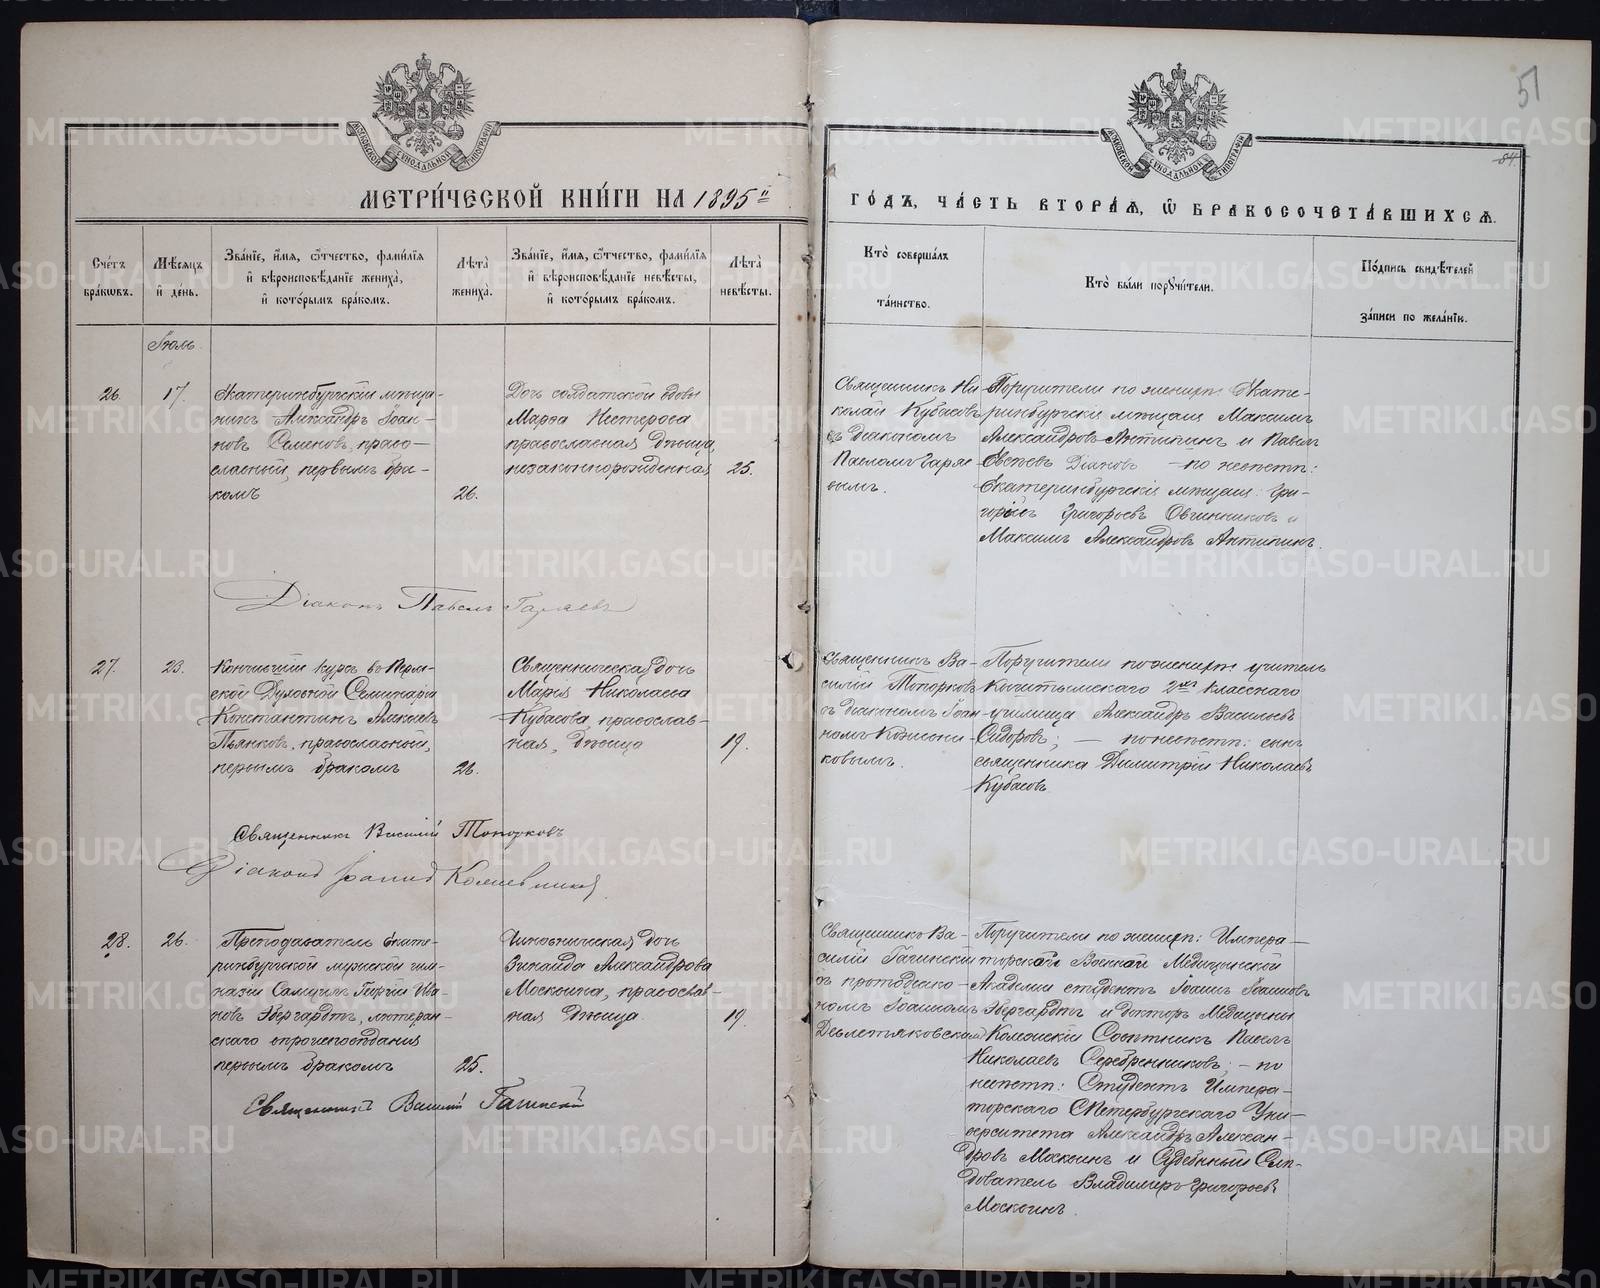 МЕТРИЧЕСКОЙ КНИГИ НА 1895й
ГОДЪ, ЧАСТЬ ВТОРАЯ, Ѡ БРАКОСОЧЕТАВШИХСЯ.
51
84.
МОСКОВСКОЙ СѴНОДАЛЬНОЙ ТИПОГРАФІИ
МОСКОВСКОЙ СѴНОДАЛЬНОЙ ТИПОГРАФІИ
Счетъ
браковъ.
Мѣсяцъ
и день.
Званіе, имя, отчество, фамилія
и вѣроисповѣданіе жениха,
и которымъ бракомъ.
Лѣта
жениха.
Званіе, имя, отчество, фамилія
и вѣроисповѣданіе невѣсты,
и которымъ бракомъ.
Лѣта
невѣсты.
Кто совершалъ
таинство.
Кто были поручители.
Подпись свидѣтелей
записи по желанію.
Іюль
26.
17.
Екатеринбургскій мѣща-
нинъ Александръ Іоан-
новъ Семеновъ, право-
славный, первымъ бра-
комъ
26.
Дочь солдатской вдовы
Марѳа Нестерова
православная дѣвица,
незаконнорожденная
25.
Священникъ Ни-
колай Кубасовъ
съ діакономъ
Павломъ Гаряе
вымъ.
Поручители по женихѣ Екате-
ринбургскіе мѣщане Максимъ
Александровъ Антипинъ и Павелъ
Евсѣевъ Діановъ — по невѣстѣ:
Екатеринбургскіе мѣщане: Гри-
горій Григорьевъ Овчинниковъ и
Максимъ Александровъ Антипинъ.
Діаконъ Павелъ Гаряевъ
27.
23.
Кончившій курсъ въ Перм-
ской Духовной Семинаріи
Константинъ Алексѣевъ
Пьянковъ, православный,
первымъ бракомъ
26.
Священническая дочь
Марія Николаева
Кубасова православ-
ная, дѣвица
19.
Священникъ Ва-
силій Топорковъ
съ діакономъ Іоан-
номъ Кожевни-
ковымъ.
Поручители по женихѣ учитель
Кыштымскаго 2хъ класснаго
училища Александръ Васильевъ
Сидоровъ; — по невѣстѣ: сынъ
священника Димитрій Николаевъ
Кубасовъ
Священникъ Василій Топорковъ
Діаконъ Іоаннъ Кожевниковъ
28.
26.
Преподаватель Екате-
ринбургской мужской гим-
назіи Самуилъ Георгій Ива-
новъ Эбергардтъ, лютеран-
скаго вѣроисповѣданія
первымъ бракомъ
25.
Чиновническая дочь
Зинаида Александрова
Москвина, православ-
ная дѣвица
19.
Священникъ Ва-
силій Гагинскій
съ протодіако-
номъ Іоанномъ
Девлетьяковскимъ
Поручители по женихѣ: Импера-
торской Военной Медицинской
Академіи студентъ Іоаннъ Іоанновъ
Эбергардтъ и докторъ Медицины
Коллежскій Совѣтникъ Павелъ
Николаевъ Серебренниковъ; — по
невѣстѣ: Студентъ Импера-
торскаго СПетербургскаго Уни-
верситета Александръ Алексан-
дровъ Москвинъ и Судебный Слѣ-
дователь Владимиръ Григорьевъ
Москвинъ.
Священникъ Василій Гагинскій
METRIKI.GASO-URAL.RU